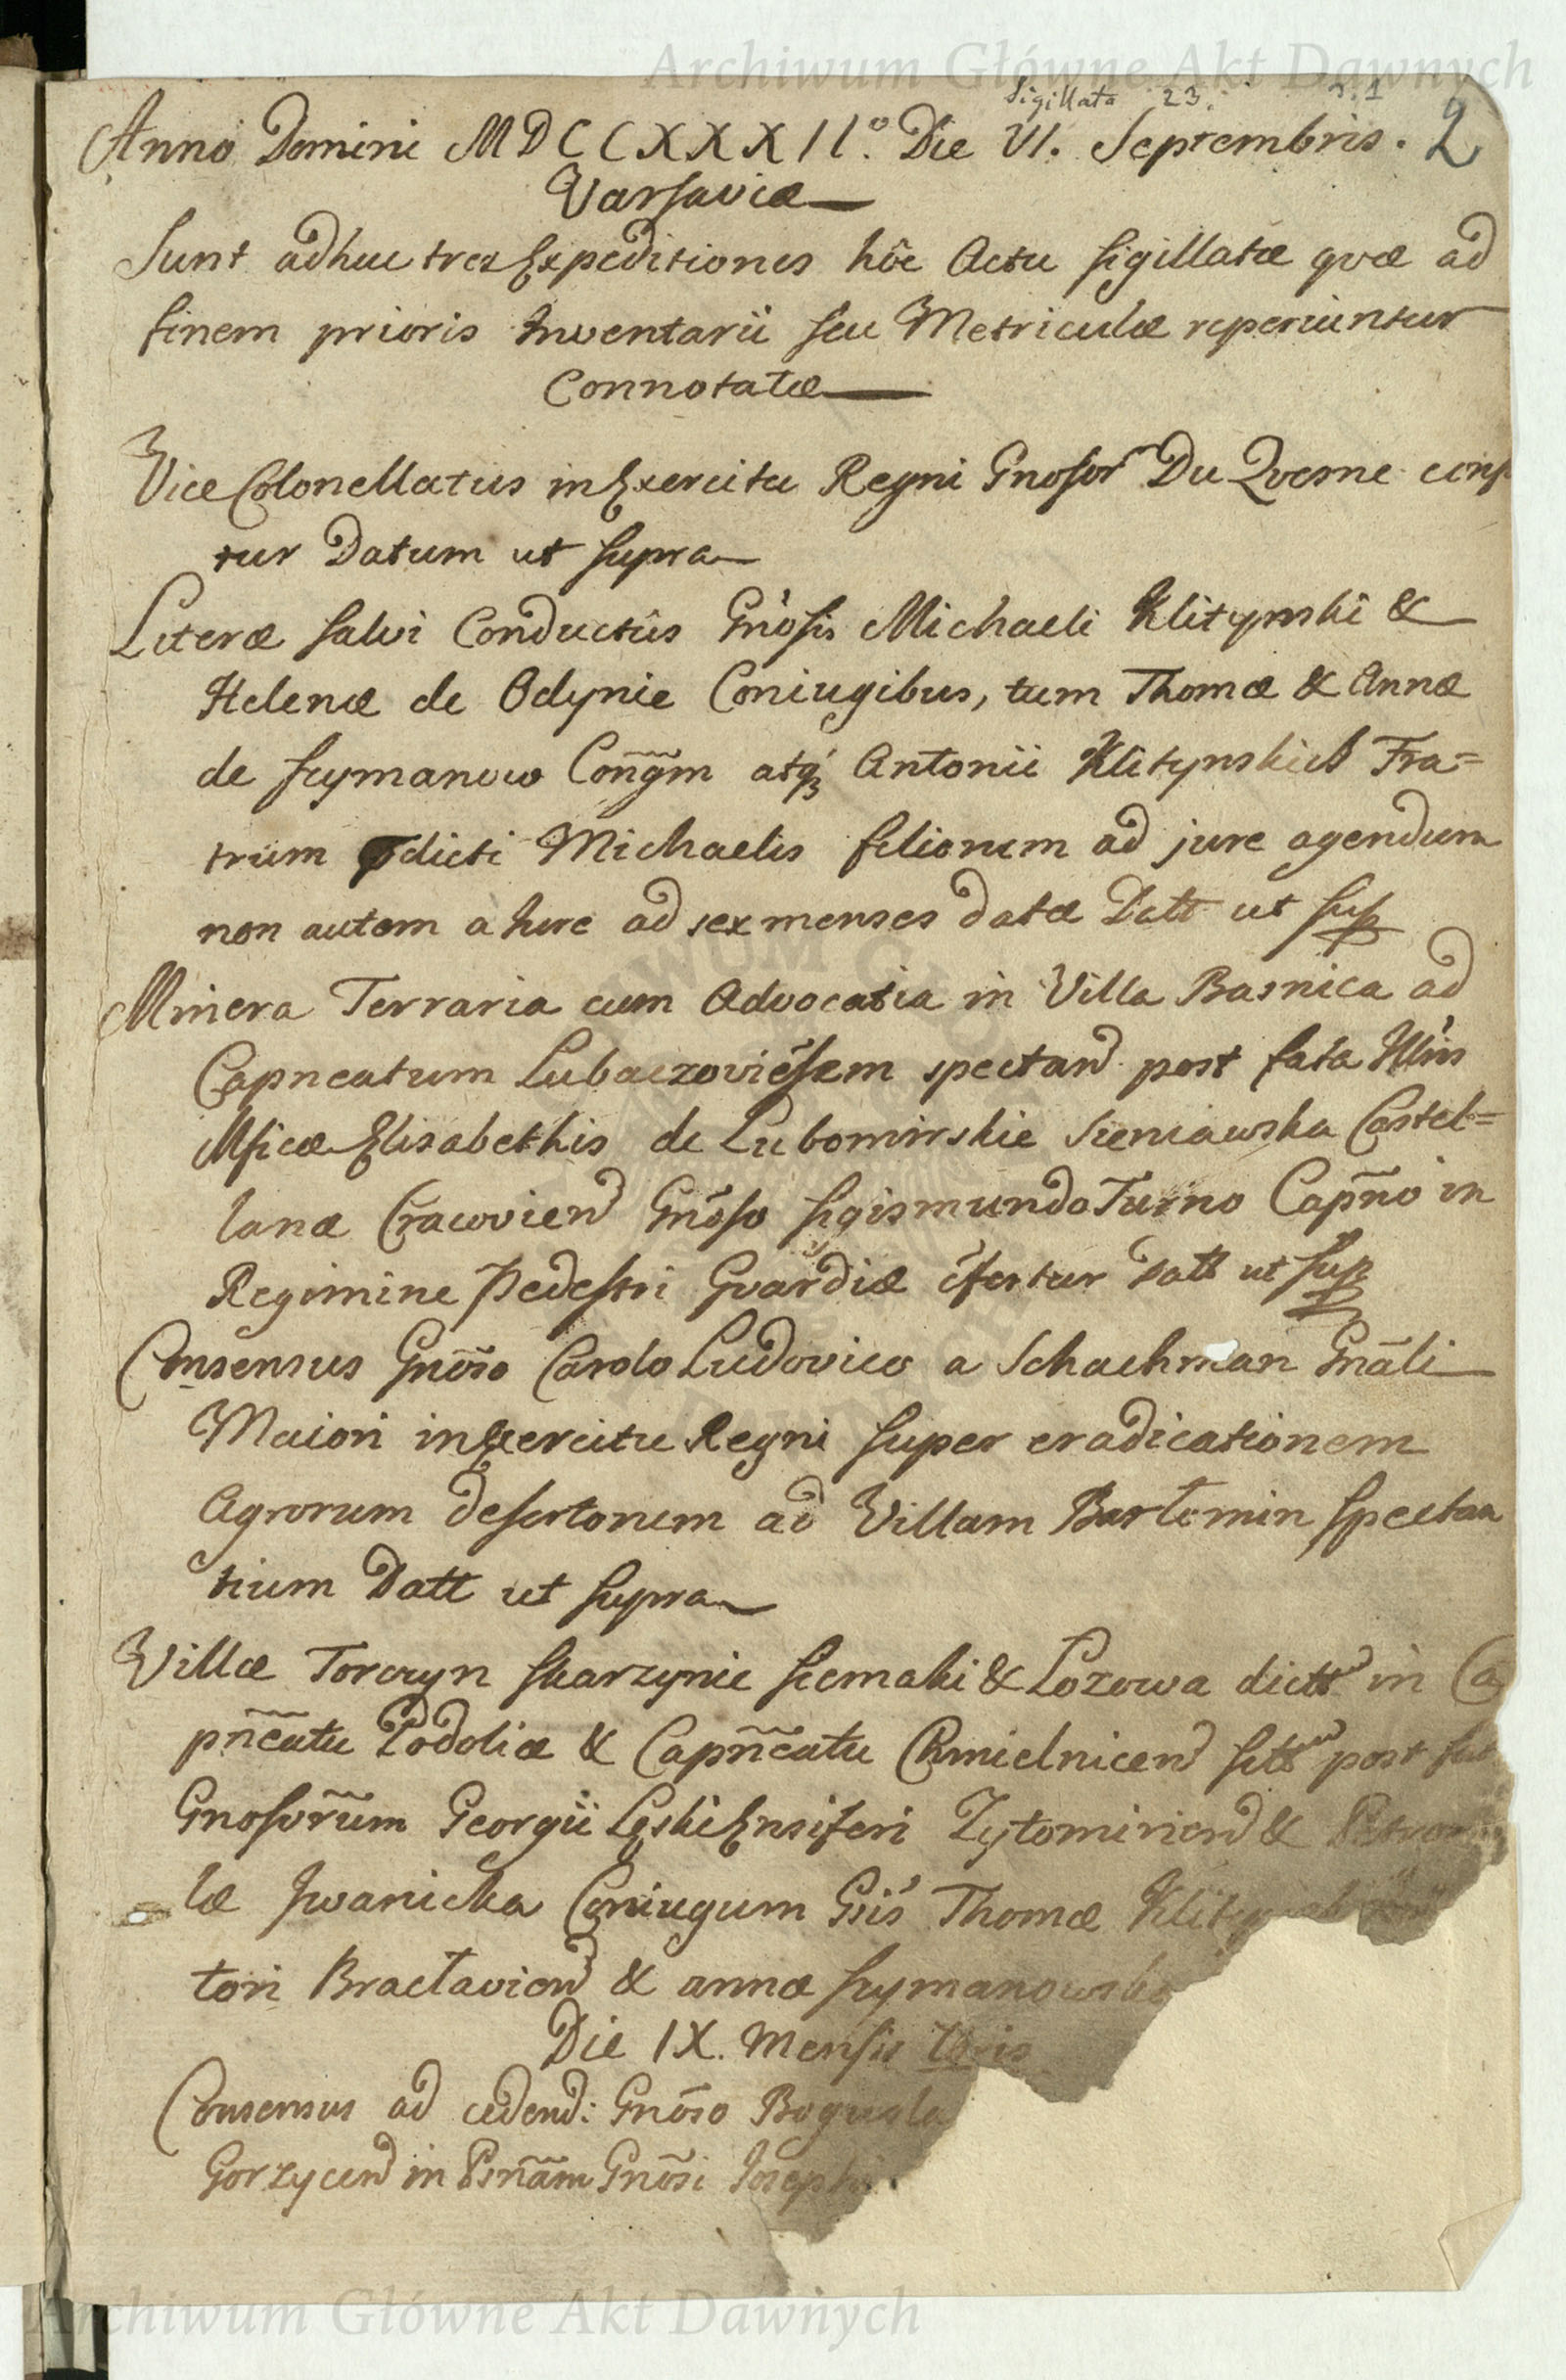 Archiwum Główne Akt Dawnych
Sigillata 23.
Anno Domini MDCCXXXII° Die VI. Septembris. 2
Varsaviæ
Sunt adhuc tres Expeditiones hôc Actu sigillatæ qvæ ad
finem prioris Inventarii seu Metriculæ reperiuntur
Connotatæ
Vice Colonellatus in Exercitu Regni Gnosor Du Qvesne
tur Datum ut supra
Literæ salvi Conductûs Gnosis Michaeli Klitynski &
Helenæ de Odynie Coniugibus, tum Thomæ & Annæ
de Szymanow Congm atq Antonii Klitynskich Fra=
trum pdicti Michaelis filiorum ad jure agendum
non autem a ad sex menses datæ Datt ut sup
Minera Terraria cum Advocatia in Villa Basnica ad
Capneatum Lubaczoviesem spectand post fata Illris
Mficæ Elisabethis de Lubomirskie Sieniawska Castel=
lanæ Cracoviend Gnoso Sigismundo Turno Capno in
Regimine Pedestri Gvardiæ cfertur Datt ut sup
Consensus Gnoso Carolo Ludovico a Schachman Gnali
Maiori in Exercitu Regni super eradicationem
Agrorum desertorum ad Villam Bartomin spectan
tium Datt ut supra
Villæ Torczyn Skarzynie Siemaki & Lozowa dictt in Ca
pneatu Podoliæ & Capneatu Chmielnicend sitt post
Gnosorum Georgii Leski Ensiferi Zytomiriend &
læ Iwanicka Coniugum Gsis Thomæ
tori Braclaviend & annæ Szymanowska
Die IX. Mensis 7bris
Consensus ad cedend: Gnoso Bogusla
Gorzycend in Psnam Gnosi Josephi
Archiwum Główne Akt Dawnych